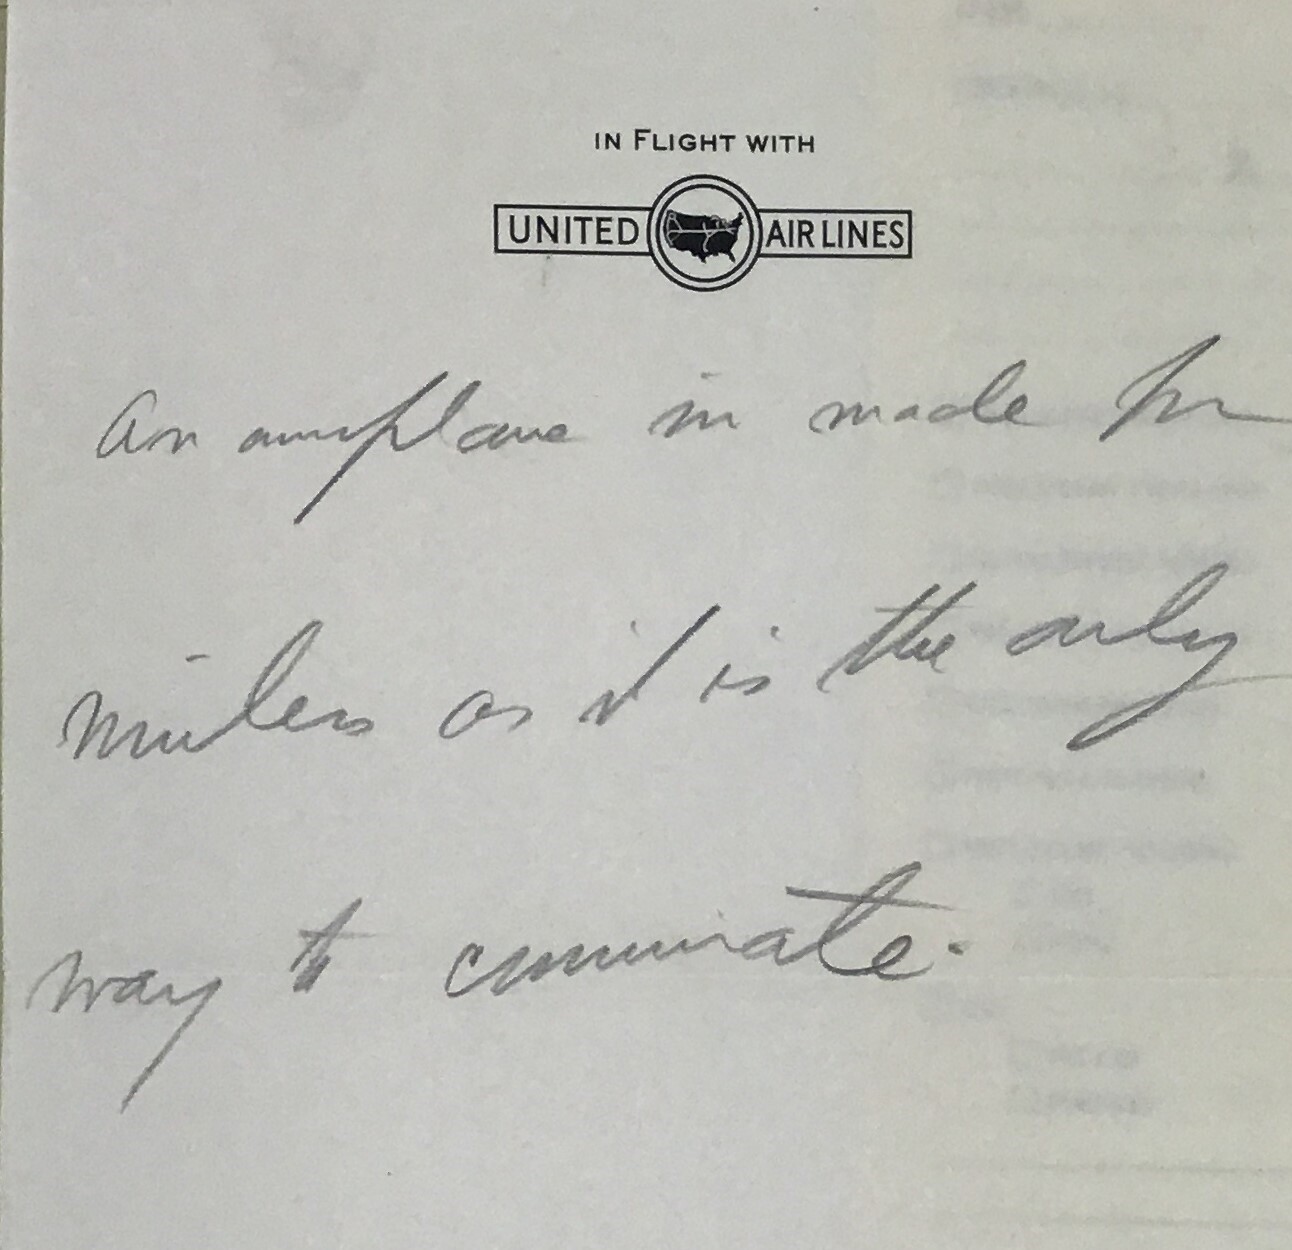 IN FLIGHT WITH
UNITED AIR LINES
An airplane is made for
as it is the only
way to